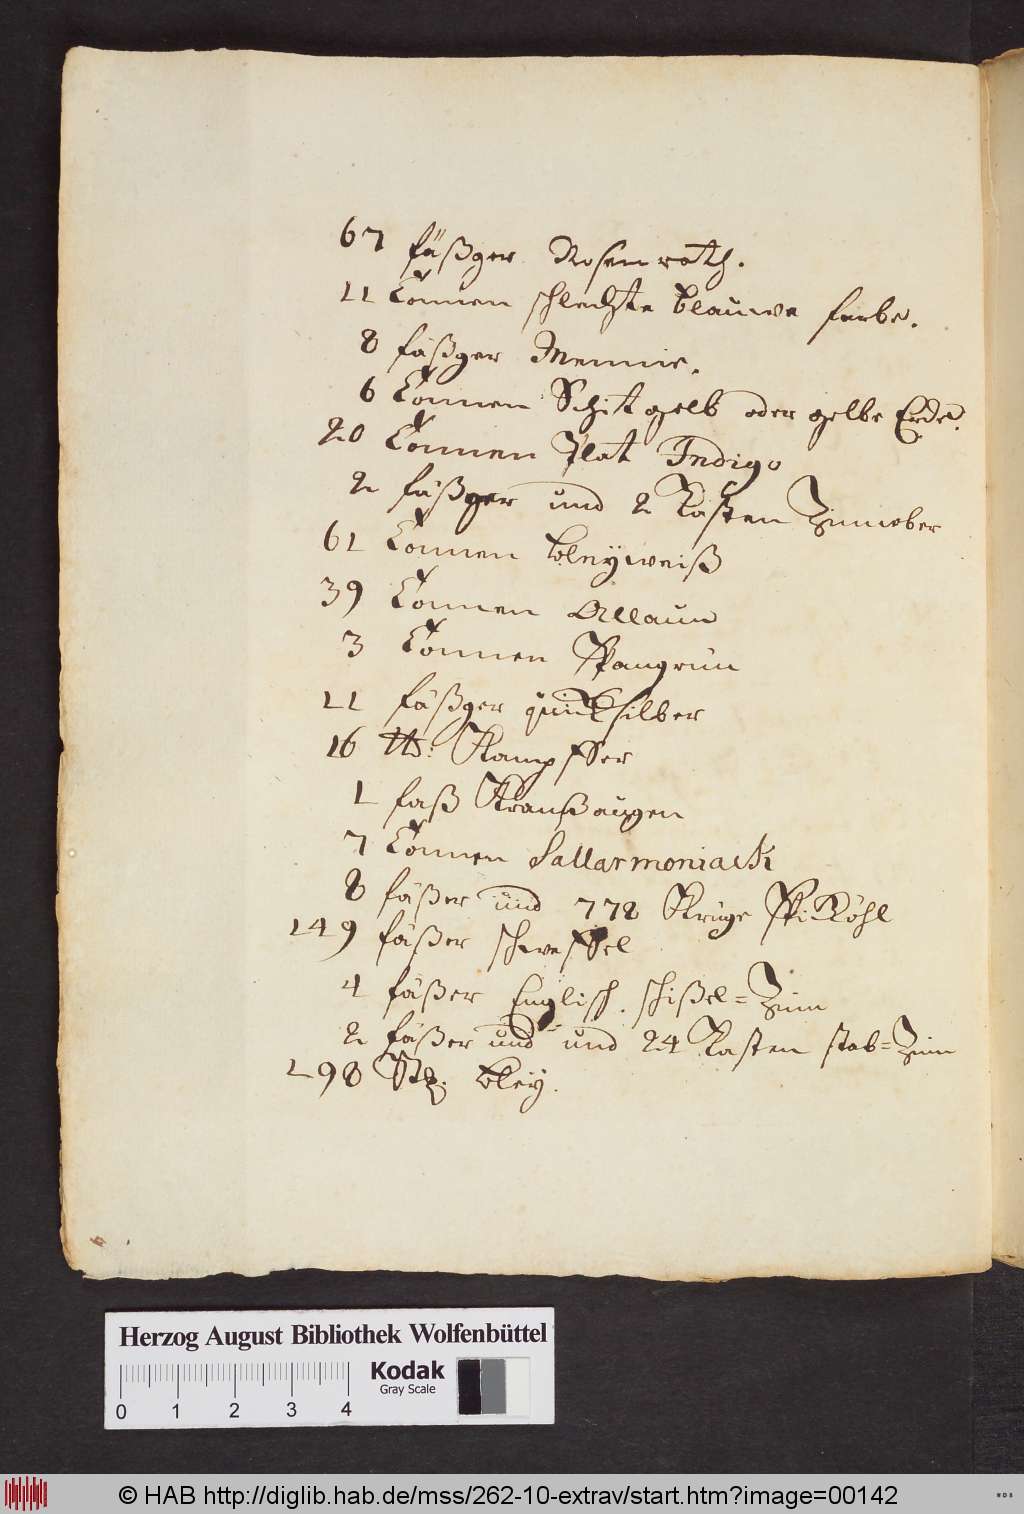 67 fäßger Rosenroth.
11 Tonnen schlechte blauwe farbe.
8 fäßger Mennie.
6 Tonnen Schitgelb oder gelbe Erde.
20 Tonnen Plat Indigo
2 fäßger und 2 Kasten Zinnober
61 Tonnen bleyweiß
39 Tonnen Allaun
3 Tonnen Spangrün
11 fäßger quicksilber
16 ℔: Kampffer
1 faß Kranßaugen
7 Tonnen Sallarmoniack
8 fäßer und 778 Krüge SpiKöhl
149 fäßer schweffel
4 fäßer Englisch. schißel=Zinn
2 fäßer und und 24 Kasten stab=Zinn
298 Stk. bley.
Herzog August Bibliothek Wolfenbüttel
Kodak
Gray Scale
0 1 2 3 4
© HAB http://diglib.hab.de/mss/262-10-extrav/start.htm?image=00142